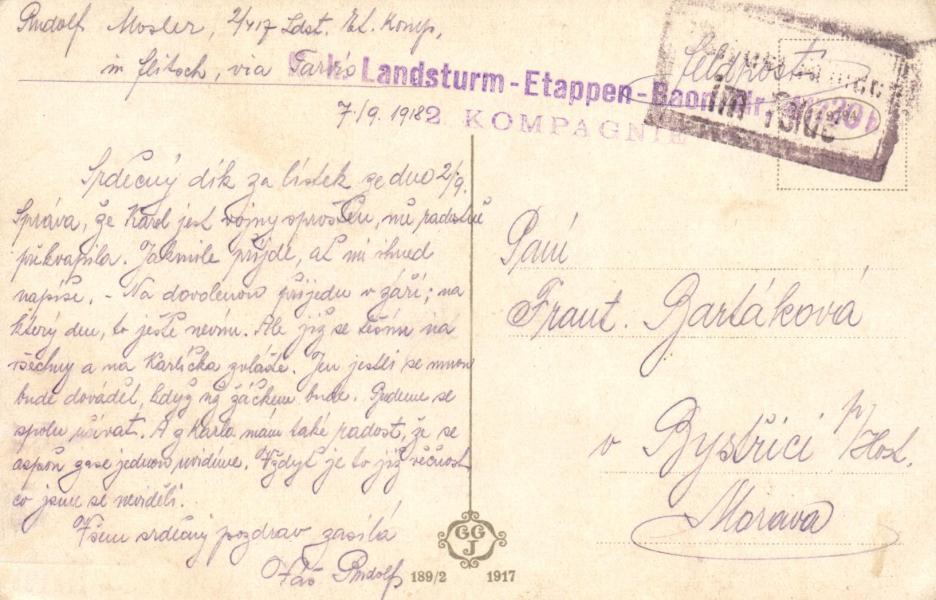 Rudolf Mosler, 2/417 Ldst. Et. Komp,
in Flitsch, via Tarvis
K.k. Landsturm-Etappen-Baon Nr.
7/9. 1918
2. KOMPAGNIE
Feldpost
im Felde
Srdečný dík za lístek ze dne 2/9.
Správa, že Karel jest vojny sprostěn, mě radostně
překvapila. Jakmile přijde, ať mi ihned
napíše. - Na dovolenou přijedu v září; na
který den, to ještě nevím. Ale již se těším na
všechny a na Karlíčka zvláště. Jen jestli se mnou
bude dovádět, když už žáčkem bude. Budeme se
spolu učívat. A z Karla mám také radost, že se
aspoň zase jednou uvidíme. Vždyť je to již věčnost
co jsme se neviděli.
Všem srdečný pozdrav zasílá
Váš Rudolf
Paní
Frant. Bartáková
v Bystřici p/Host.
Morava
GG
J
189/2 1917